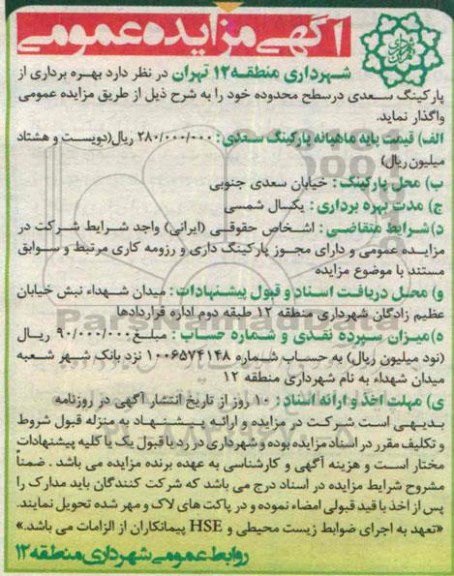 آگهی مزایده عمومی
شهرداری منطقه ۱۲ تهران در نظر دارد بهره برداری از
پارکینگ سعدی درسطح محدوده خود را به شرح ذیل از طریق مزایده عمومی
واگذار نماید.
الف) قیمت پایه ماهیانه پارکینگ سعدی : ۲۸۰/۰۰۰/۰۰۰ ریال(دویست و هشتاد
میلیون ریال)
ب) محل پارکینگ : خیابان سعدی جنوبی
ج) مدت بهره برداری : یکسال شمسی
د) شرایط متقاضی : اشخاص حقوقی (ایرانی) واجد شرایط شرکت در
مزایده عمومی و دارای مجوز پارکینگ داری و رزومه کاری مرتبط و سوابق
مستند با موضوع مزایده
و) محل دریافت اسناد و قبول پیشنهادات : میدان شهداء نبش خیابان
عظیم زادگان شهرداری منطقه ۱۲ طبقه دوم اداره قراردادها
ه) میزان سپرده نقدی و شماره حساب : مبلغ ۹۰/۰۰۰/۰۰۰ ریال
(نود میلیون ریال) به حساب شماره ۱۰۰۶۵۷۴۱۴۸ نزد بانک شهر شعبه
میدان شهداء به نام شهرداری منطقه ۱۲
ی) مهلت اخذ و ارائه اسناد : ۱۰ روز از تاریخ انتشار آگهی در روزنامه
بدیهی است شرکت در مزایده و ارائه پیشنهاد به منزله قبول شروط
و تکلیف مقرر در اسناد مزایده بوده و شهرداری در رد یا قبول یک یا کلیه پیشنهادات
مختار است و هزینه آگهی و کارشناسی به عهده برنده مزایده می باشد . ضمناً
مشروح شرایط مزایده در اسناد درج می باشد که شرکت کنندگان باید مدارک را
پس از اخذ با قید قبولی امضاء نموده و در پاکت های لاک و مهر شده تحویل نمایند.
«تعهد به اجرای ضوابط زیست محیطی و HSE پیمانکاران از الزامات می باشد.»
روابط عمومی شهرداری منطقه ۱۲